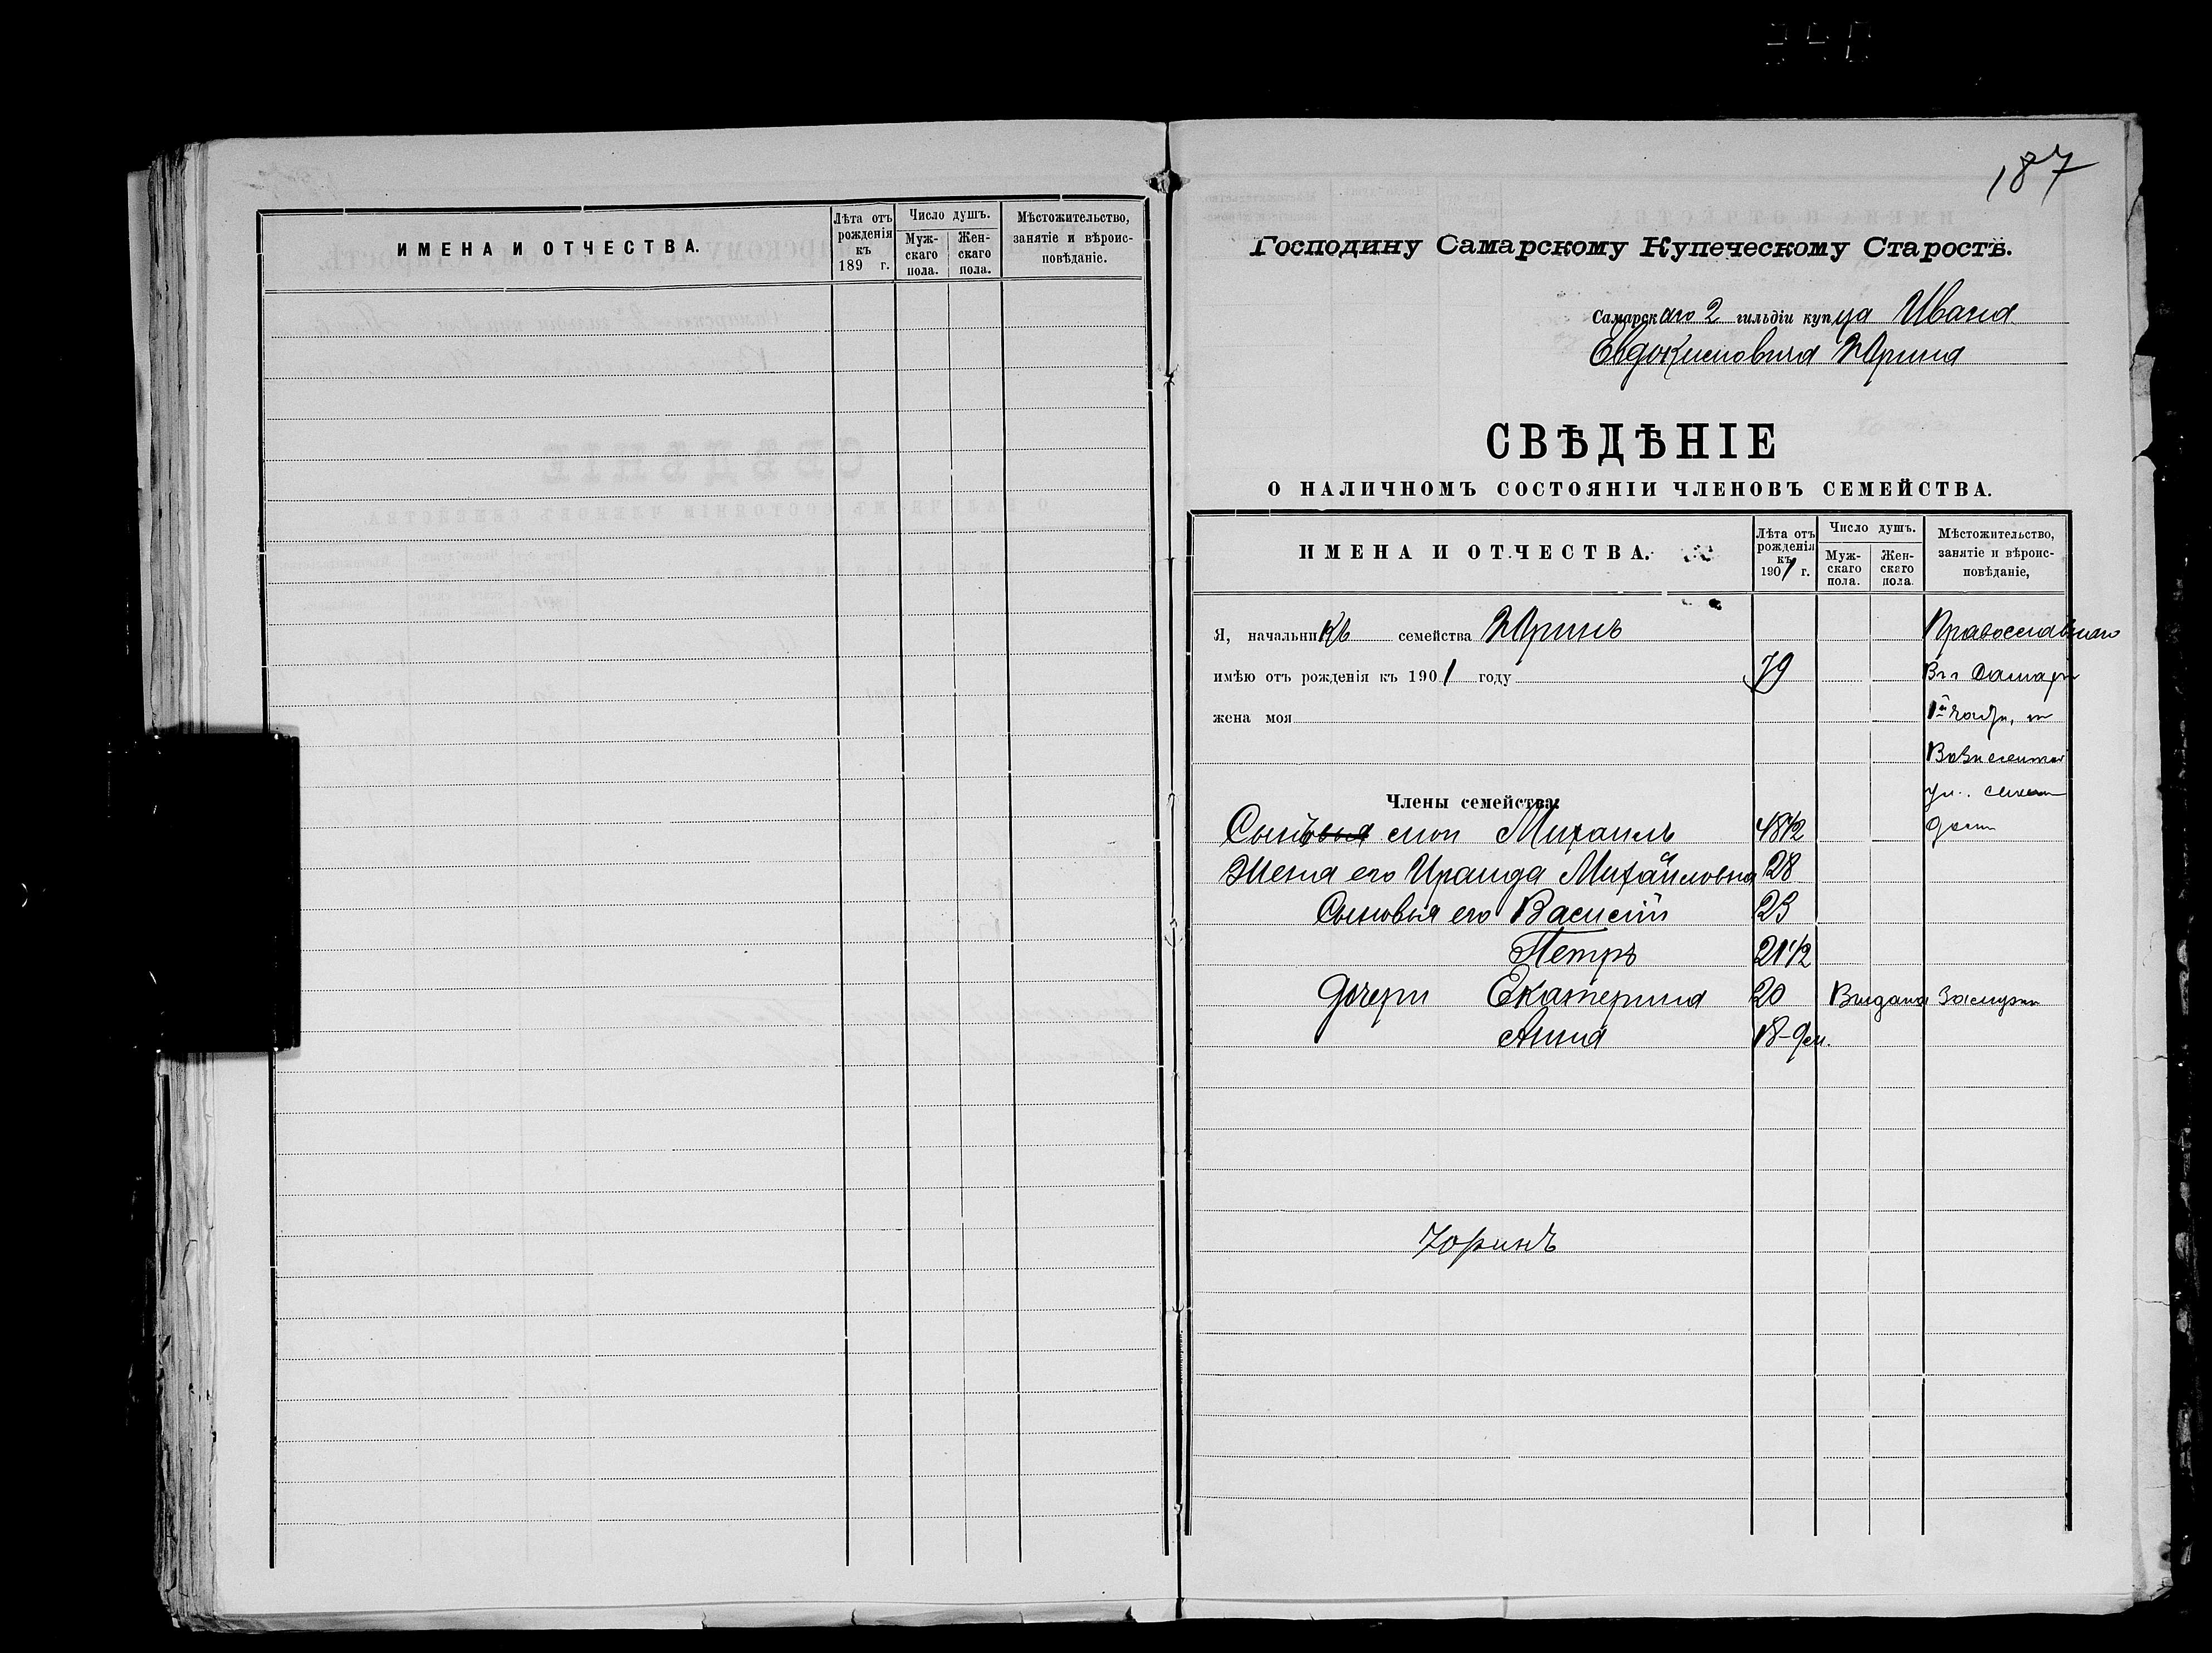 ИМЕНА И ОТЧЕСТВА.
Лѣта отъ рожденія къ 189 г.
Число душъ.
Мужскаго пола.
Женскаго пола.
Мѣстожительство, занятіе и вѣроисповѣданіе.
187
Господину Самарскому Купеческому Старостѣ.
Самарскаго 2 гильдіи купца Ивана
Евдокимовича Юрина
СВѢДѢНІЕ
О НАЛИЧНОМЪ СОСТОЯНІИ ЧЛЕНОВЪ СЕМЕЙСТВА.
ИМЕНА И ОТЧЕСТВА.
Лѣта отъ рожденія къ 1901 г.
Число душъ.
Мужскаго пола.
Женскаго пола.
Мѣстожительство, занятіе и вѣроисповѣданіе,
Я, начальникъ семейства Юринъ Православнаго
имѣю отъ рожденія къ 1901 году 79 Въ г Самарѣ
жена моя 1й части, на
Вознесенской
ул.
Члены семейства:
Сыновья мои Михаилъ 48½ домъ
Жена его Ираида Михайловна 28
Сыновья его Василій 23
Петръ 21½
Дочери Екатерина 20 Выдана замужъ
Анна 18-9 м.
Юринъ